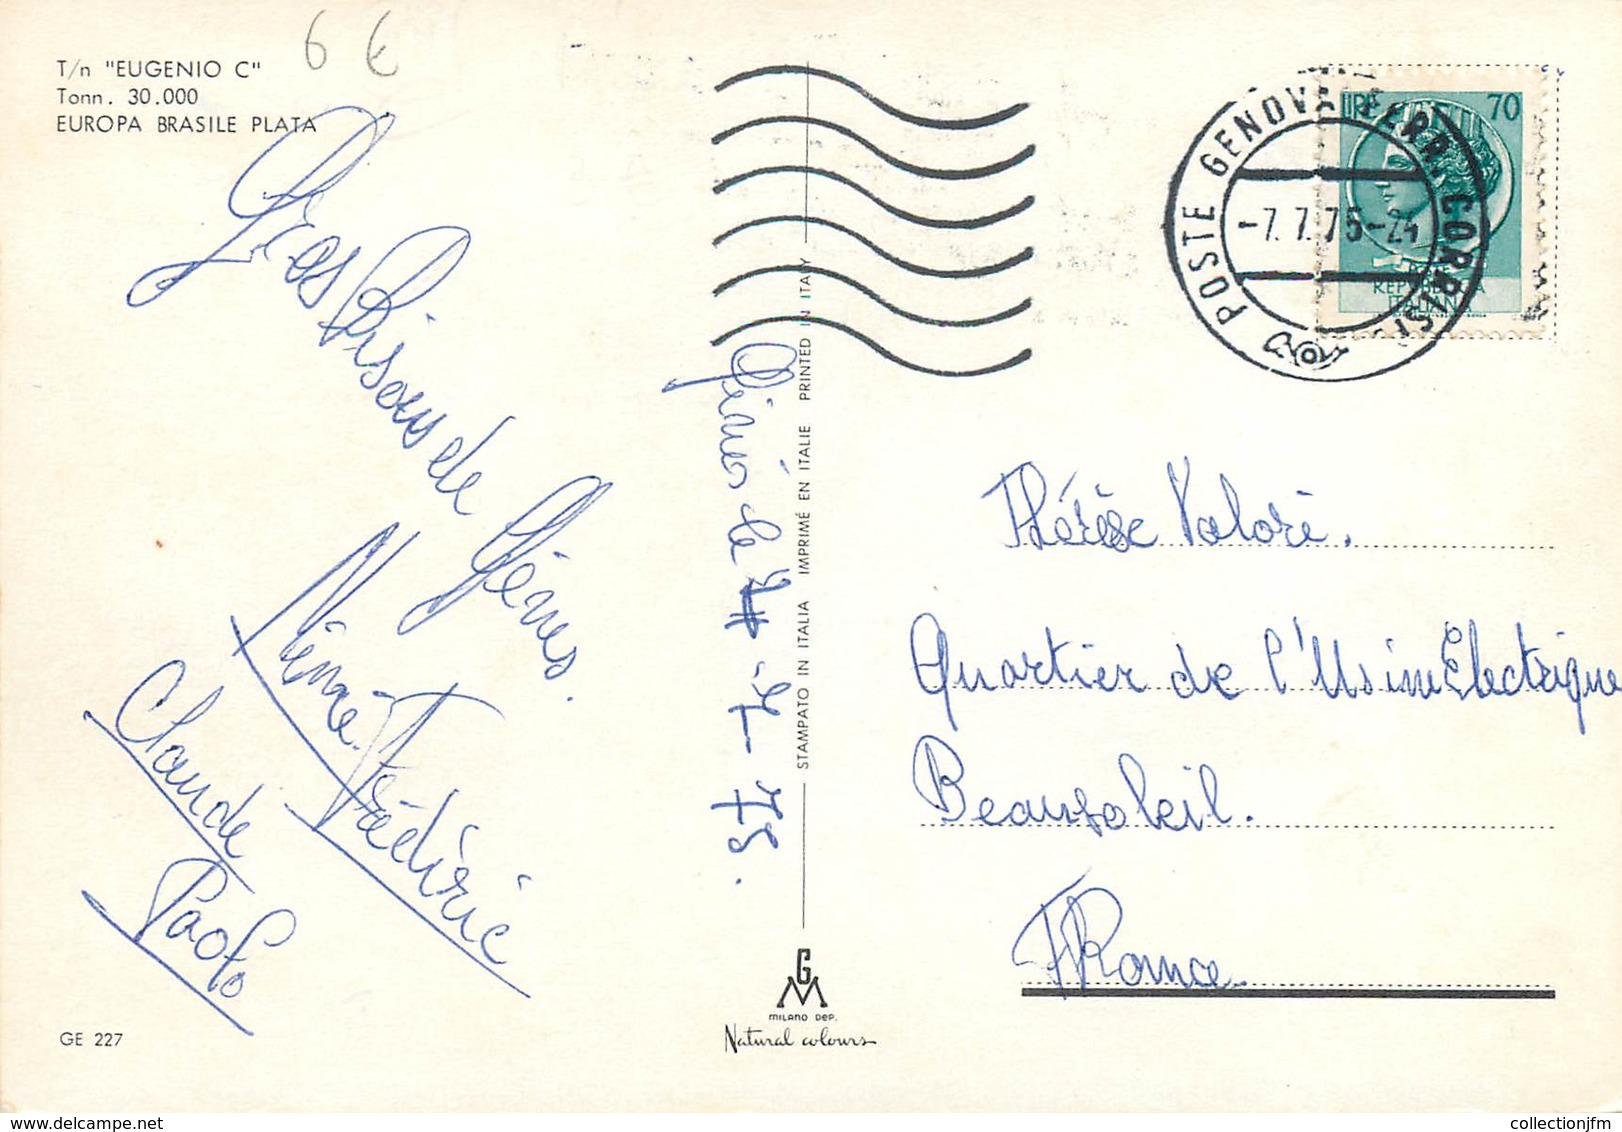 6 €
T/n "EUGENIO C"
Tonn. 30.000
EUROPA BRASILE PLATA
Gros Bisous de Gênes.
Frédéric
Claude
Paolo
GE 227
Gênes le
7-75.
STAMPATO IN ITALIA IMPRIMÉ EN ITALIE PRINTED IN ITALY
GM
MILANO DEP.
Natural colours
POSTE GENOVA FERR. CORRISP
-7.7.75-24
LIRE 70
REPUBBLICA
ITALIANA
Thérèse Valori.
Quartier de l'Usine Electrique
Beausoleil.
FRance.
collectionjfm
delcampe.net